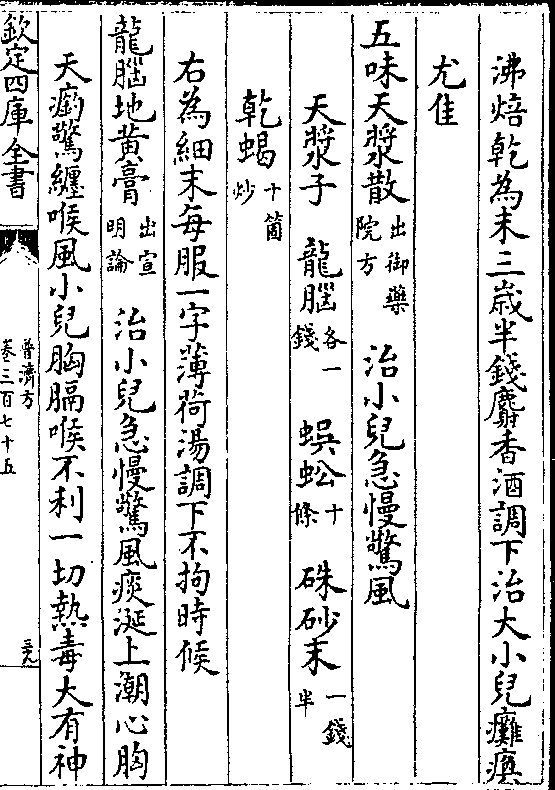 沸焙乾為末三歳半錢麝香酒調下治大小兒癱瘓
尤佳
五味天漿散出御藥院方　治小兒急慢驚風
天漿子　龍腦各一錢　蜈蚣十條　硃砂末一錢半
乾蝎十箇炒
右為細末每服一字薄荷湯調下不拘時候
龍腦地黃膏出宣明論　治小兒急慢驚風痰涎上潮心胸
天瘹驚纏喉風小兒胸膈喉不利一切熱毒大有神
欽定四庫全書
普濟方
卷三百七十五